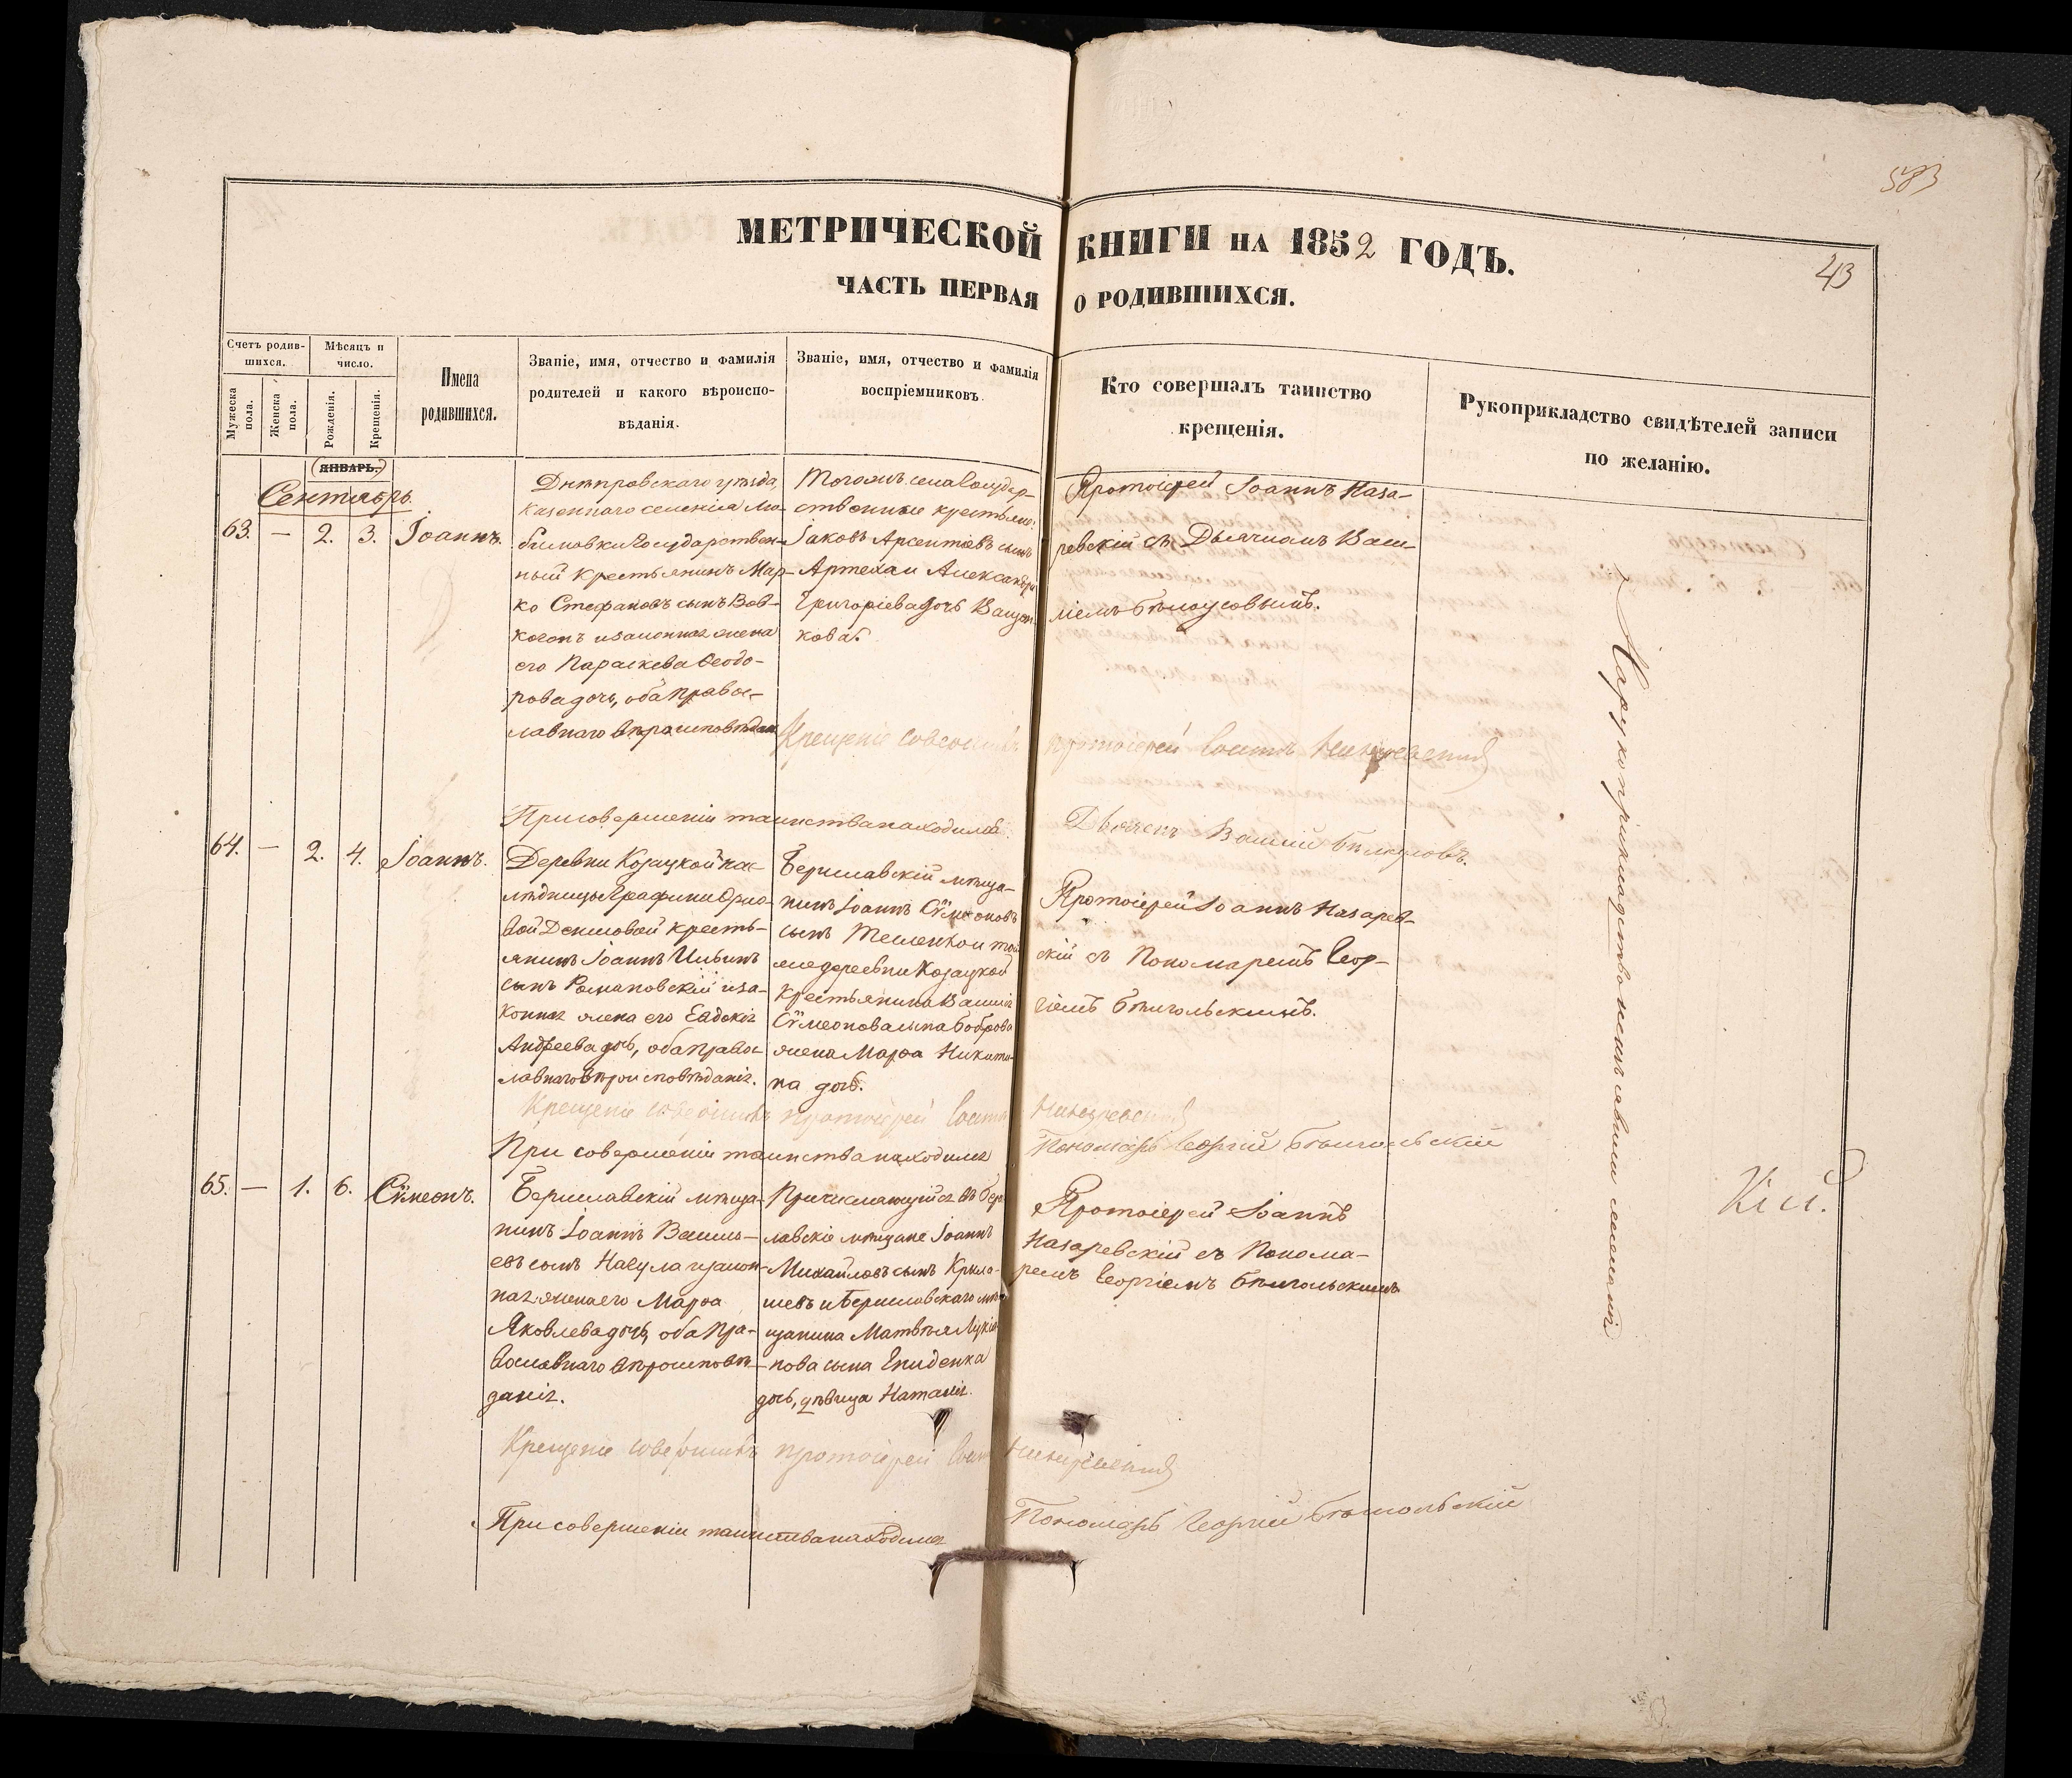 583
МЕТРИЧЕСКОЙ КНИГИ НА 1852 ГОДЪ.
43
ЧАСТЬ ПЕРВАЯ О РОДИВШИХСЯ.
Счетъ родив-
шихся.
Мужеска
пола.
Женска
пола.
Мѣсяцъ и
число.
Рожденія.
Крещенія.
Имена
родившихся.
Званіе, имя, отчество и фамилія
родителей и какого вѣроиспо-
вѣданія.
Званіе, имя, отчество и фамилія
воспріемниковъ.
Кто совершалъ таинство
крещенія.
Рукоприкладство свидѣтелей записи
по желанію.
ЯНВАРЬ.
Сентябрь.
63. — 2. 3. Іоаннъ.
Днѣпровскаго уѣзда,
казеннаго селенія Лю-
бимовки Государствен-
ный крестьянинъ Мар-
ко Стефановъ сынъ Вов-
когонъ и законная жена
его Параскева Ѳеодо-
рова дочь, оба Правос-
лавнаго вѣроисповѣдан.
Тогожъ села Государ-
ственные крестьяне:
Іаковъ Арсентіевъ сынъ
Артеха и Александра
Григоріева дочь
кова.
Протоіерей Іоаннъ Наза-
ревскій съ Дьячкомъ Васи-
ліемъ Бѣлоусовымъ.
Крещеніе совершилъ протоіерей Іоаннъ Назаревскій
При совершеніи таинства находился Дьячекъ Василій Бѣлоусовъ.
64. — 2. 4. Іоаннъ.
Деревни Козацкой нас-
лѣдницы Графини Орло-
вой Денисовой кресть-
янинъ Іоаннъ Ильинъ
сынъ Романовскій и за-
конная жена его Евдокія
Андреева дочь, оба Правос-
лавнаго вѣроисповѣданія.
Бериславскій мѣща-
нинъ Іоаннъ Сѵмеоновъ
сынъ Тесленко и той
же деревни Козацкой
крестьянина Василія
Сѵмеонова сына Боброва
жена Марѳа Никити-
на дочь.
Протоіерей Іоаннъ Назарев-
скій съ Пономаремъ Геор-
гіемъ Бѣлгольскимъ.
Крещеніе совершилъ протоіерей Іоаннъ Назаревскій
При совершеніи таинства находился Пономарь Георгій Бѣлгольскій
65. — 1. 6. Сѵмеонъ.
Бериславскій мѣща-
нинъ Іоаннъ Василь-
евъ сынъ и закон-
ная жена его Марѳа
Яковлева дочь, оба Пра-
вославнаго вѣроисповѣ-
данія.
Причисляющійся въ Бери-
лавскіе мѣщане Іоаннъ
Михайловъ сынъ Крыло-
шевъ и Бериславскаго мѣ-
щанина Матвѣя Лукія-
нова сына Епиденка
дочь, дѣвица Наталія.
Протоіерей Іоаннъ
Назаревскій съ Понома-
ремъ Георгіемъ Бѣлгольскимъ
Крещеніе совершилъ протоіерей Іоаннъ Назаревскій
При совершеніи таинства находился Пономарь Георгій Бѣлгольскій
Кій.